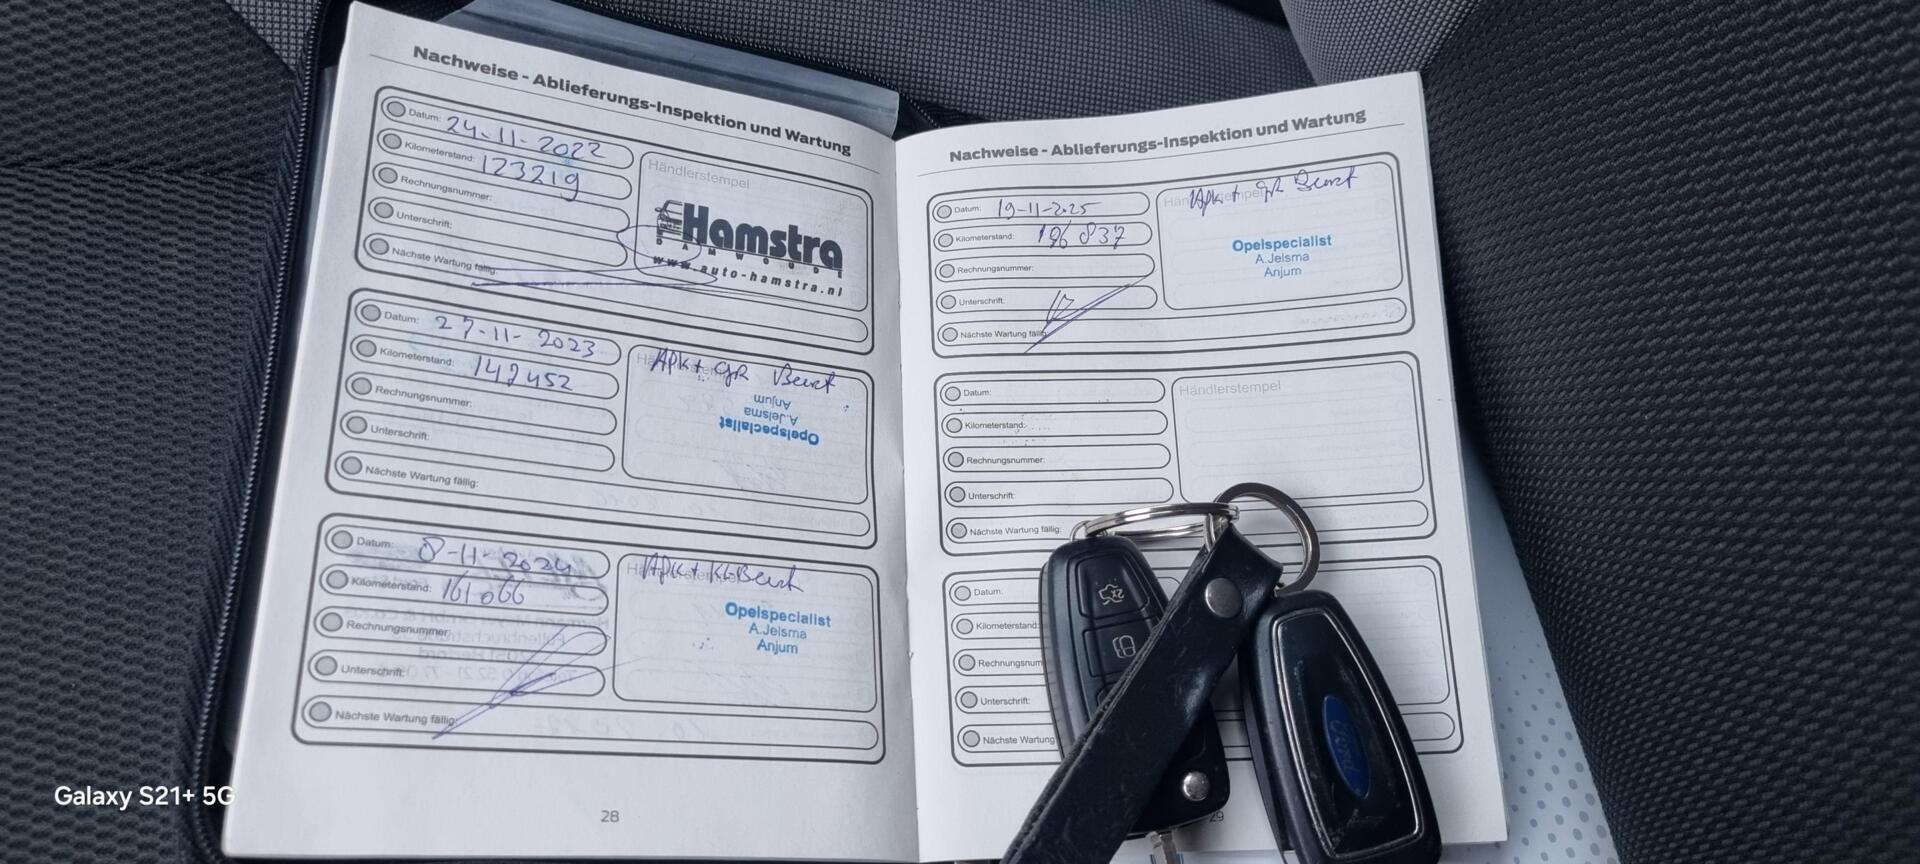 Nachweise - Ablieferungs-Inspektion und Wartung
Datum: 24-11-2022
Kilometerstand: 123219
Rechnungsnummer:
Unterschrift:
Nächste Wartung fällig:
Händlerstempel
Hamstra
DAMWOUDE
www.auto-hamstra.nl
Datum: 27-11-2023
Kilometerstand: 142452
Rechnungsnummer:
Unterschrift:
Nächste Wartung fällig:
APK + gR Beurt
Opelspecialist
A.Jelsma
Anjum
Datum: 8-11-2024
Kilometerstand: 161066
Rechnungsnummer:
Unterschrift:
Nächste Wartung fällig:
APK + Kl Beurt
Opelspecialist
A.Jelsma
Anjum
28
Nachweise - Ablieferungs-Inspektion und Wartung
Datum: 19-11-2025
Kilometerstand: 196837
Rechnungsnummer:
Unterschrift:
Nächste Wartung fällig:
Apk + gR Beurt
Opelspecialist
A.Jelsma
Anjum
Datum:
Kilometerstand:
Rechnungsnummer:
Unterschrift:
Nächste Wartung fällig:
Händlerstempel
Datum:
Kilometerstand:
Rechnungsnum
Unterschrift:
Nächste Wartung
29
2x
Ford
Galaxy S21+ 5G